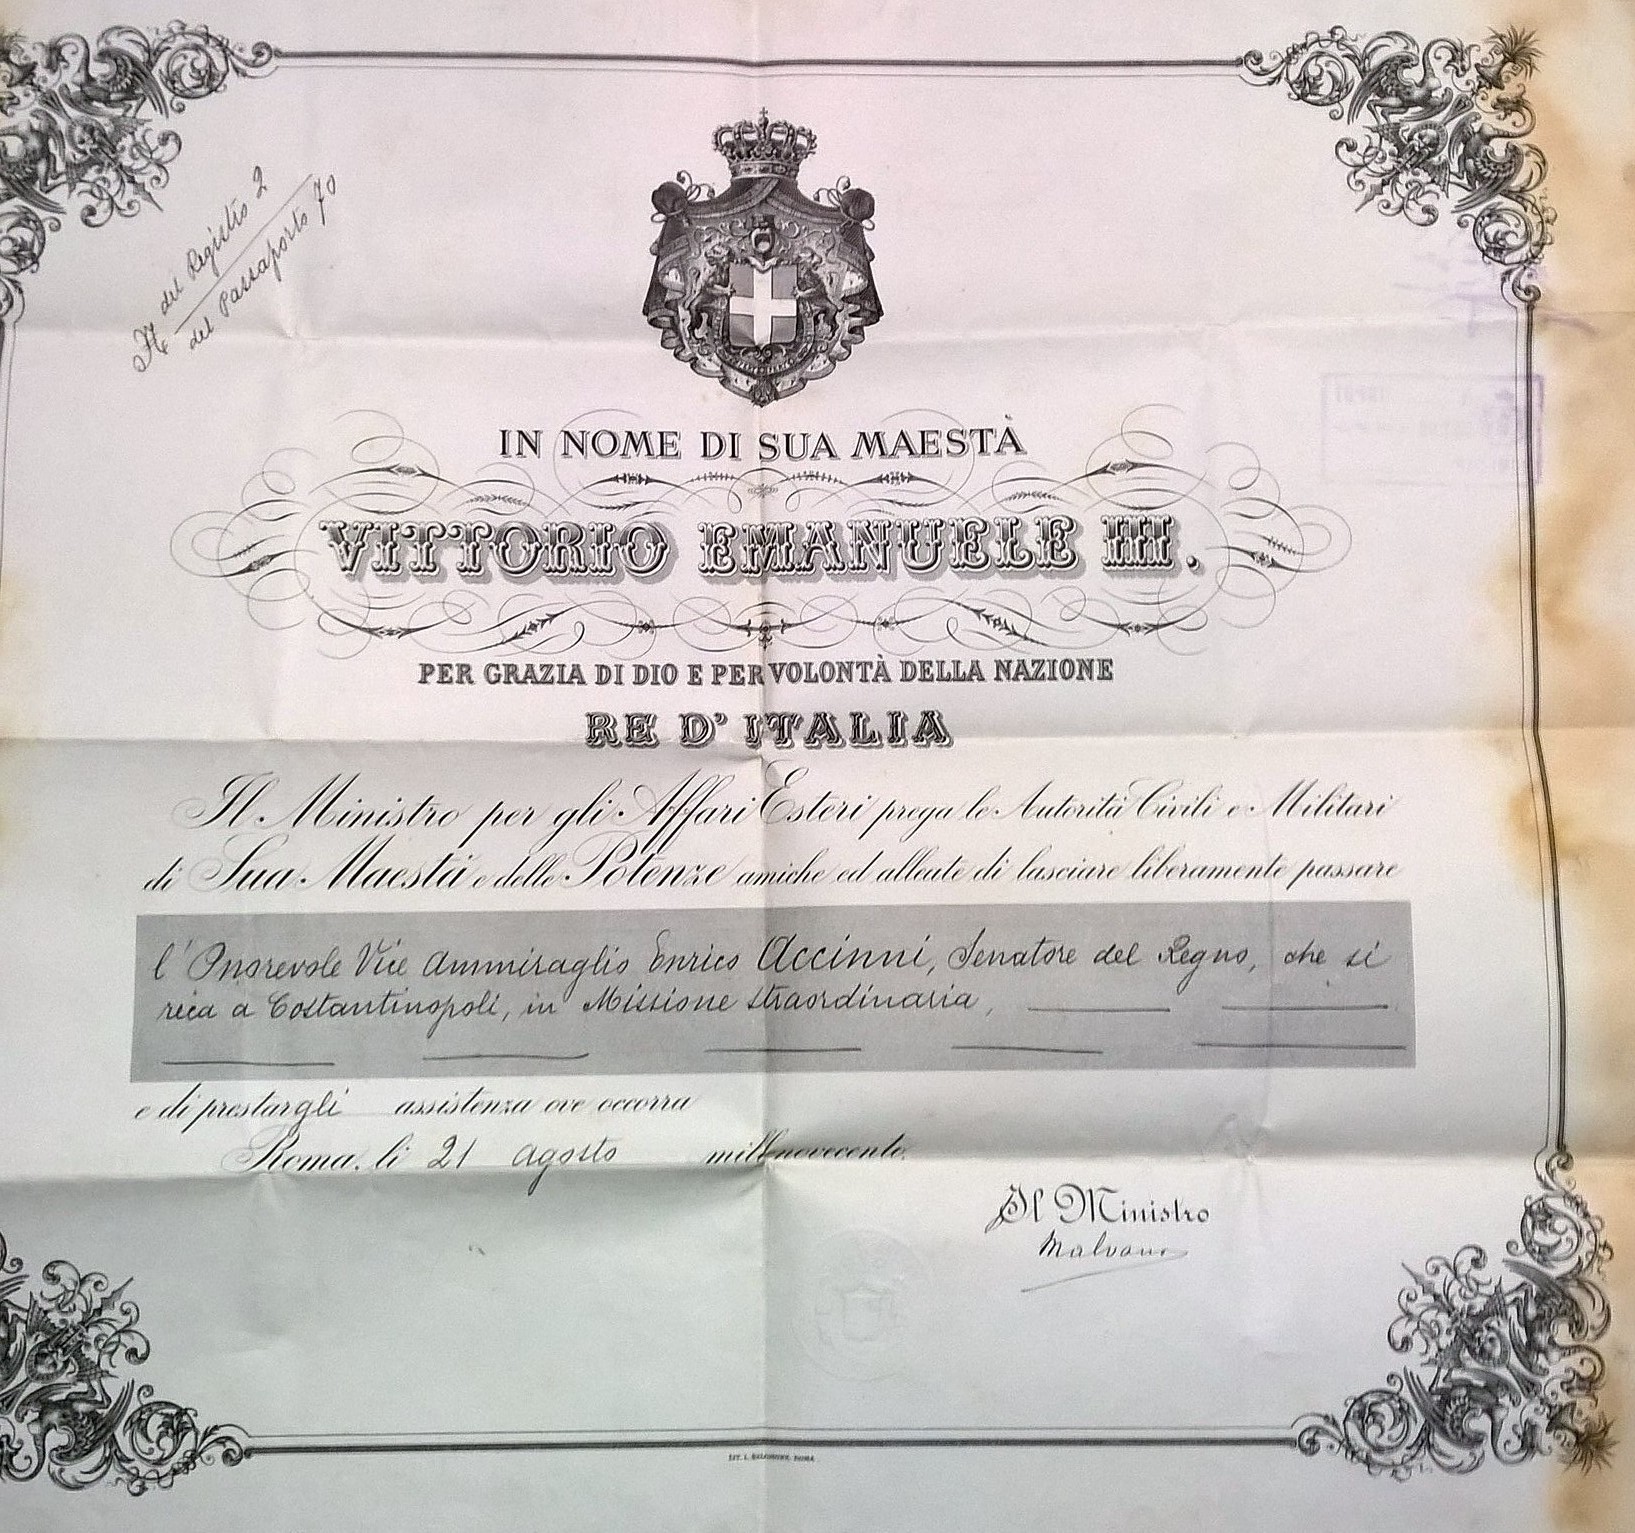 N.
del Registro 2
del Passaporto 70
IN NOME DI SUA MAESTÀ
VITTORIO EMANUELE III.
PER GRAZIA DI DIO E PER VOLONTÀ DELLA NAZIONE
RE D'ITALIA
Il Ministro per gli Affari Esteri prega le Autorità Civili e Militari
di Sua Maestà e delle Potenze amiche ed alleate di lasciare liberamente passare
l'Onorevole Vice Ammiraglio Enrico Accinni, Senatore del Regno, che si
reca a Costantinopoli, in Missione straordinaria,
e di prestargli assistenza ove occorra
Roma, li 21 agosto millenovecento
Il Ministro
Malvano
LIT. L. SALOMONE, ROMA